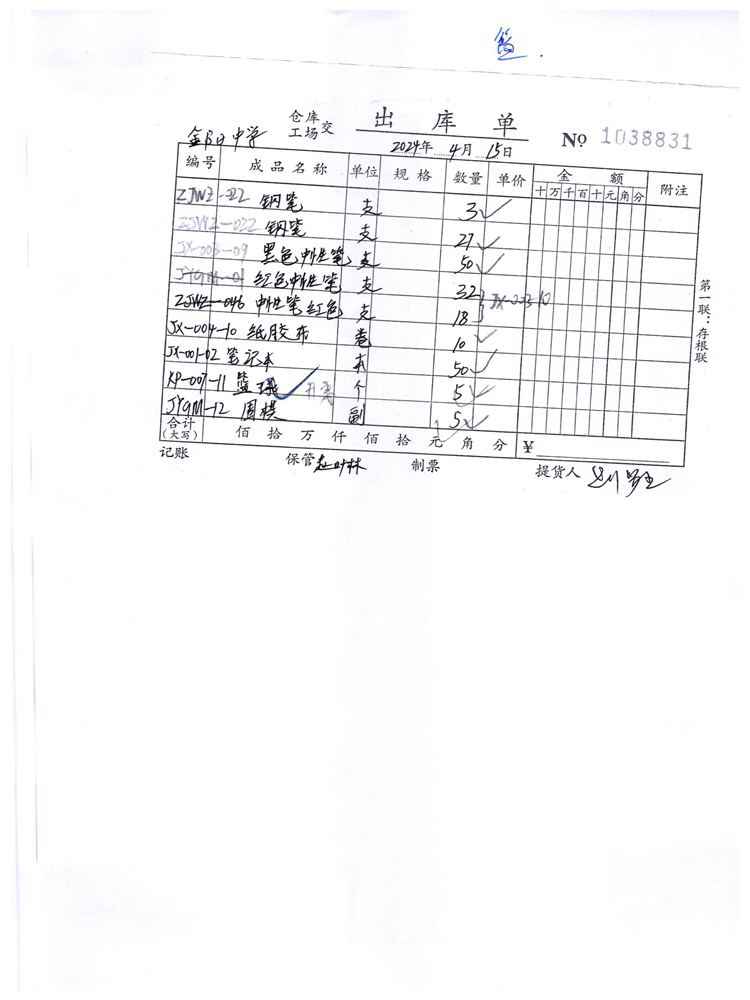 篮
仓库
工场交 出库单
金阳中学 2024年 4月 15日 № 1038831
编号 成品名称 单位 规格 数量 单价 金额 附注
十 万 千 百 十 元 角 分
ZJWZ-22 钢笔 支 3
ZJWZ-022 钢笔 支 27
JX-003-09 黑色中性笔 支 50
JYGM-01 红色中性笔 支 32
JX-003-10
ZJWZ-046 中性笔红色 支 18
JX-004-10 纸胶布 卷 10
JX-001-02 笔记本 本 50
KP-007-11 篮球 个 5
JYGM-12 围棋 副 5
合计
(大写) 佰 拾 万 仟 佰 拾 元 角 分 ¥
记账 保管 赵叶林 制票 提货人
第一联：存根联